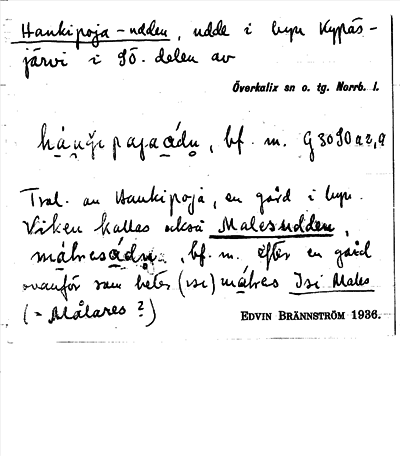 Haukipoja-udden, udde i byn Kypäs-
järvi i SÖ. delen av
Överkalix sn o. tg. Norrb. l.
bf. m.
Trol. av Haukipoja, en gård i byn.
Viken kallas också Malesudden,
bf. m. efter en gård
ovanför som heter (isi) Isi Males
(= Målares?)
EDVIN BRÄNNSTRÖM 1936.